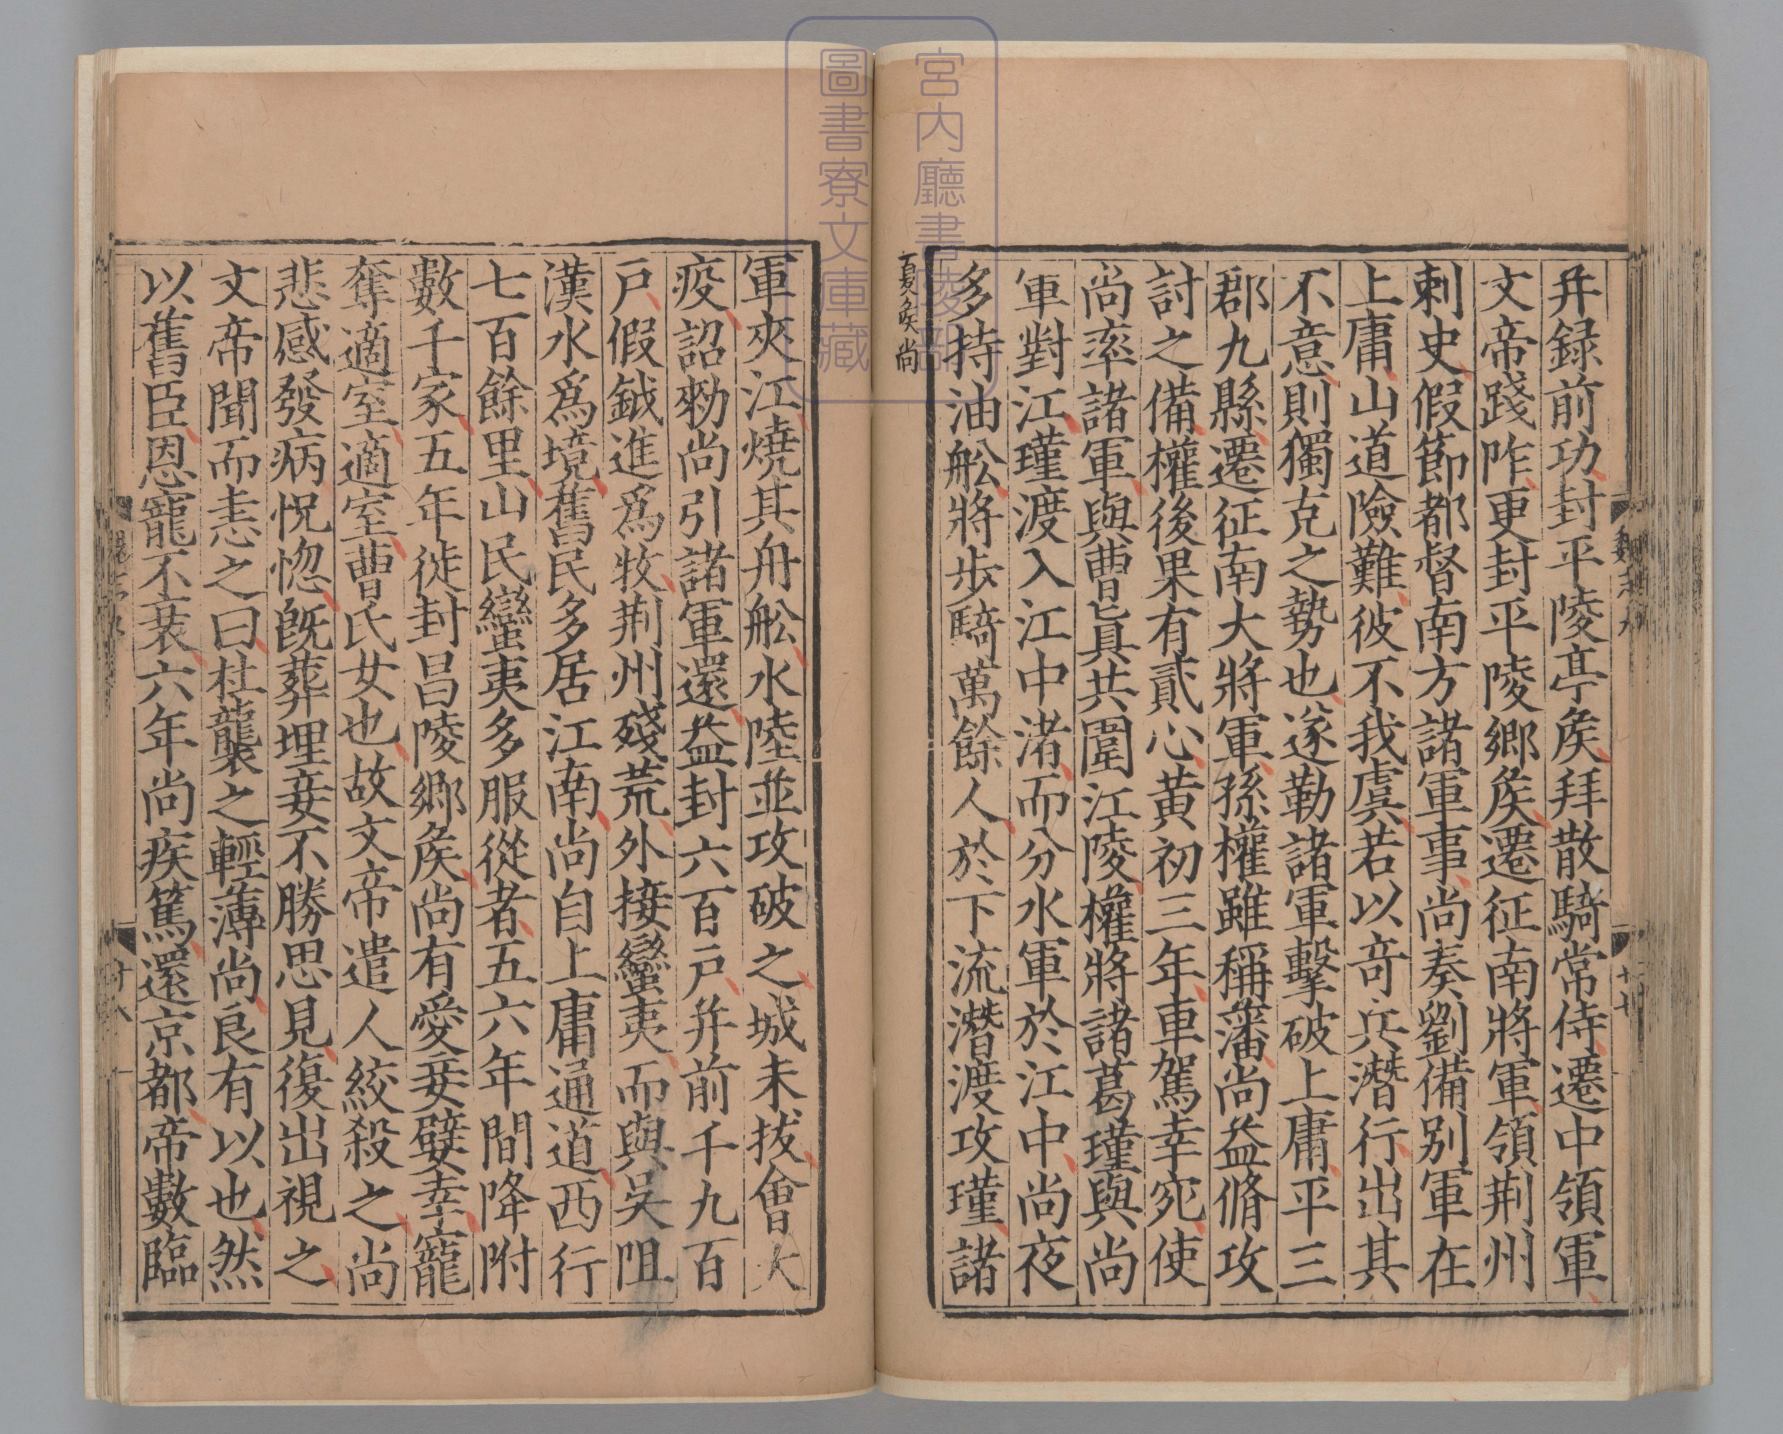 幷録前功封平陵亭矦拜散騎常侍遷中領軍
文帝踐阼更封平陵郷矦遷征南將軍領荆州
刺史假節都督南方諸軍事尚奏劉備别軍在
上庸山道險難彼不我虞若以竒兵潛行出其
不意則獨克之勢也遂勒諸軍擊破上庸平三
郡九縣遷征南大將軍孫權雖稱藩尚益脩攻
討之備權後果有貳心黃初三年車駕幸宛使
尚率諸軍與曹眞共圍江陵權將諸葛瑾與尚
軍對江瑾渡入江中渚而分水軍於江中尚夜
多持油舩將步騎萬餘人於下流潛渡攻瑾諸
夏矦尚
魏志九
廿七
軍夾江燒其舟舩水陸並攻破之城未拔會大
疫詔勑尚引諸軍還益封六百戸幷前千九百
戸假鉞進爲牧荆州殘荒外接蠻夷而與吳阻
漢水爲境舊民多居江南尚自上庸通道西行
七百餘里山民蠻夷多服從者五六年間降附
數千家五年徙封昌陵郷矦尚有愛妾嬖幸寵
奪適室適室曹氏女也故文帝遣人絞殺之尚
悲感發病怳惚旣葬埋妾不勝思見復出視之
文帝聞而恚之曰杜襲之輕薄尚良有以也然
以舊臣恩寵不衰六年尚疾篤還京都帝數臨
廿八
宮内廳書陵部
圖書寮文庫藏